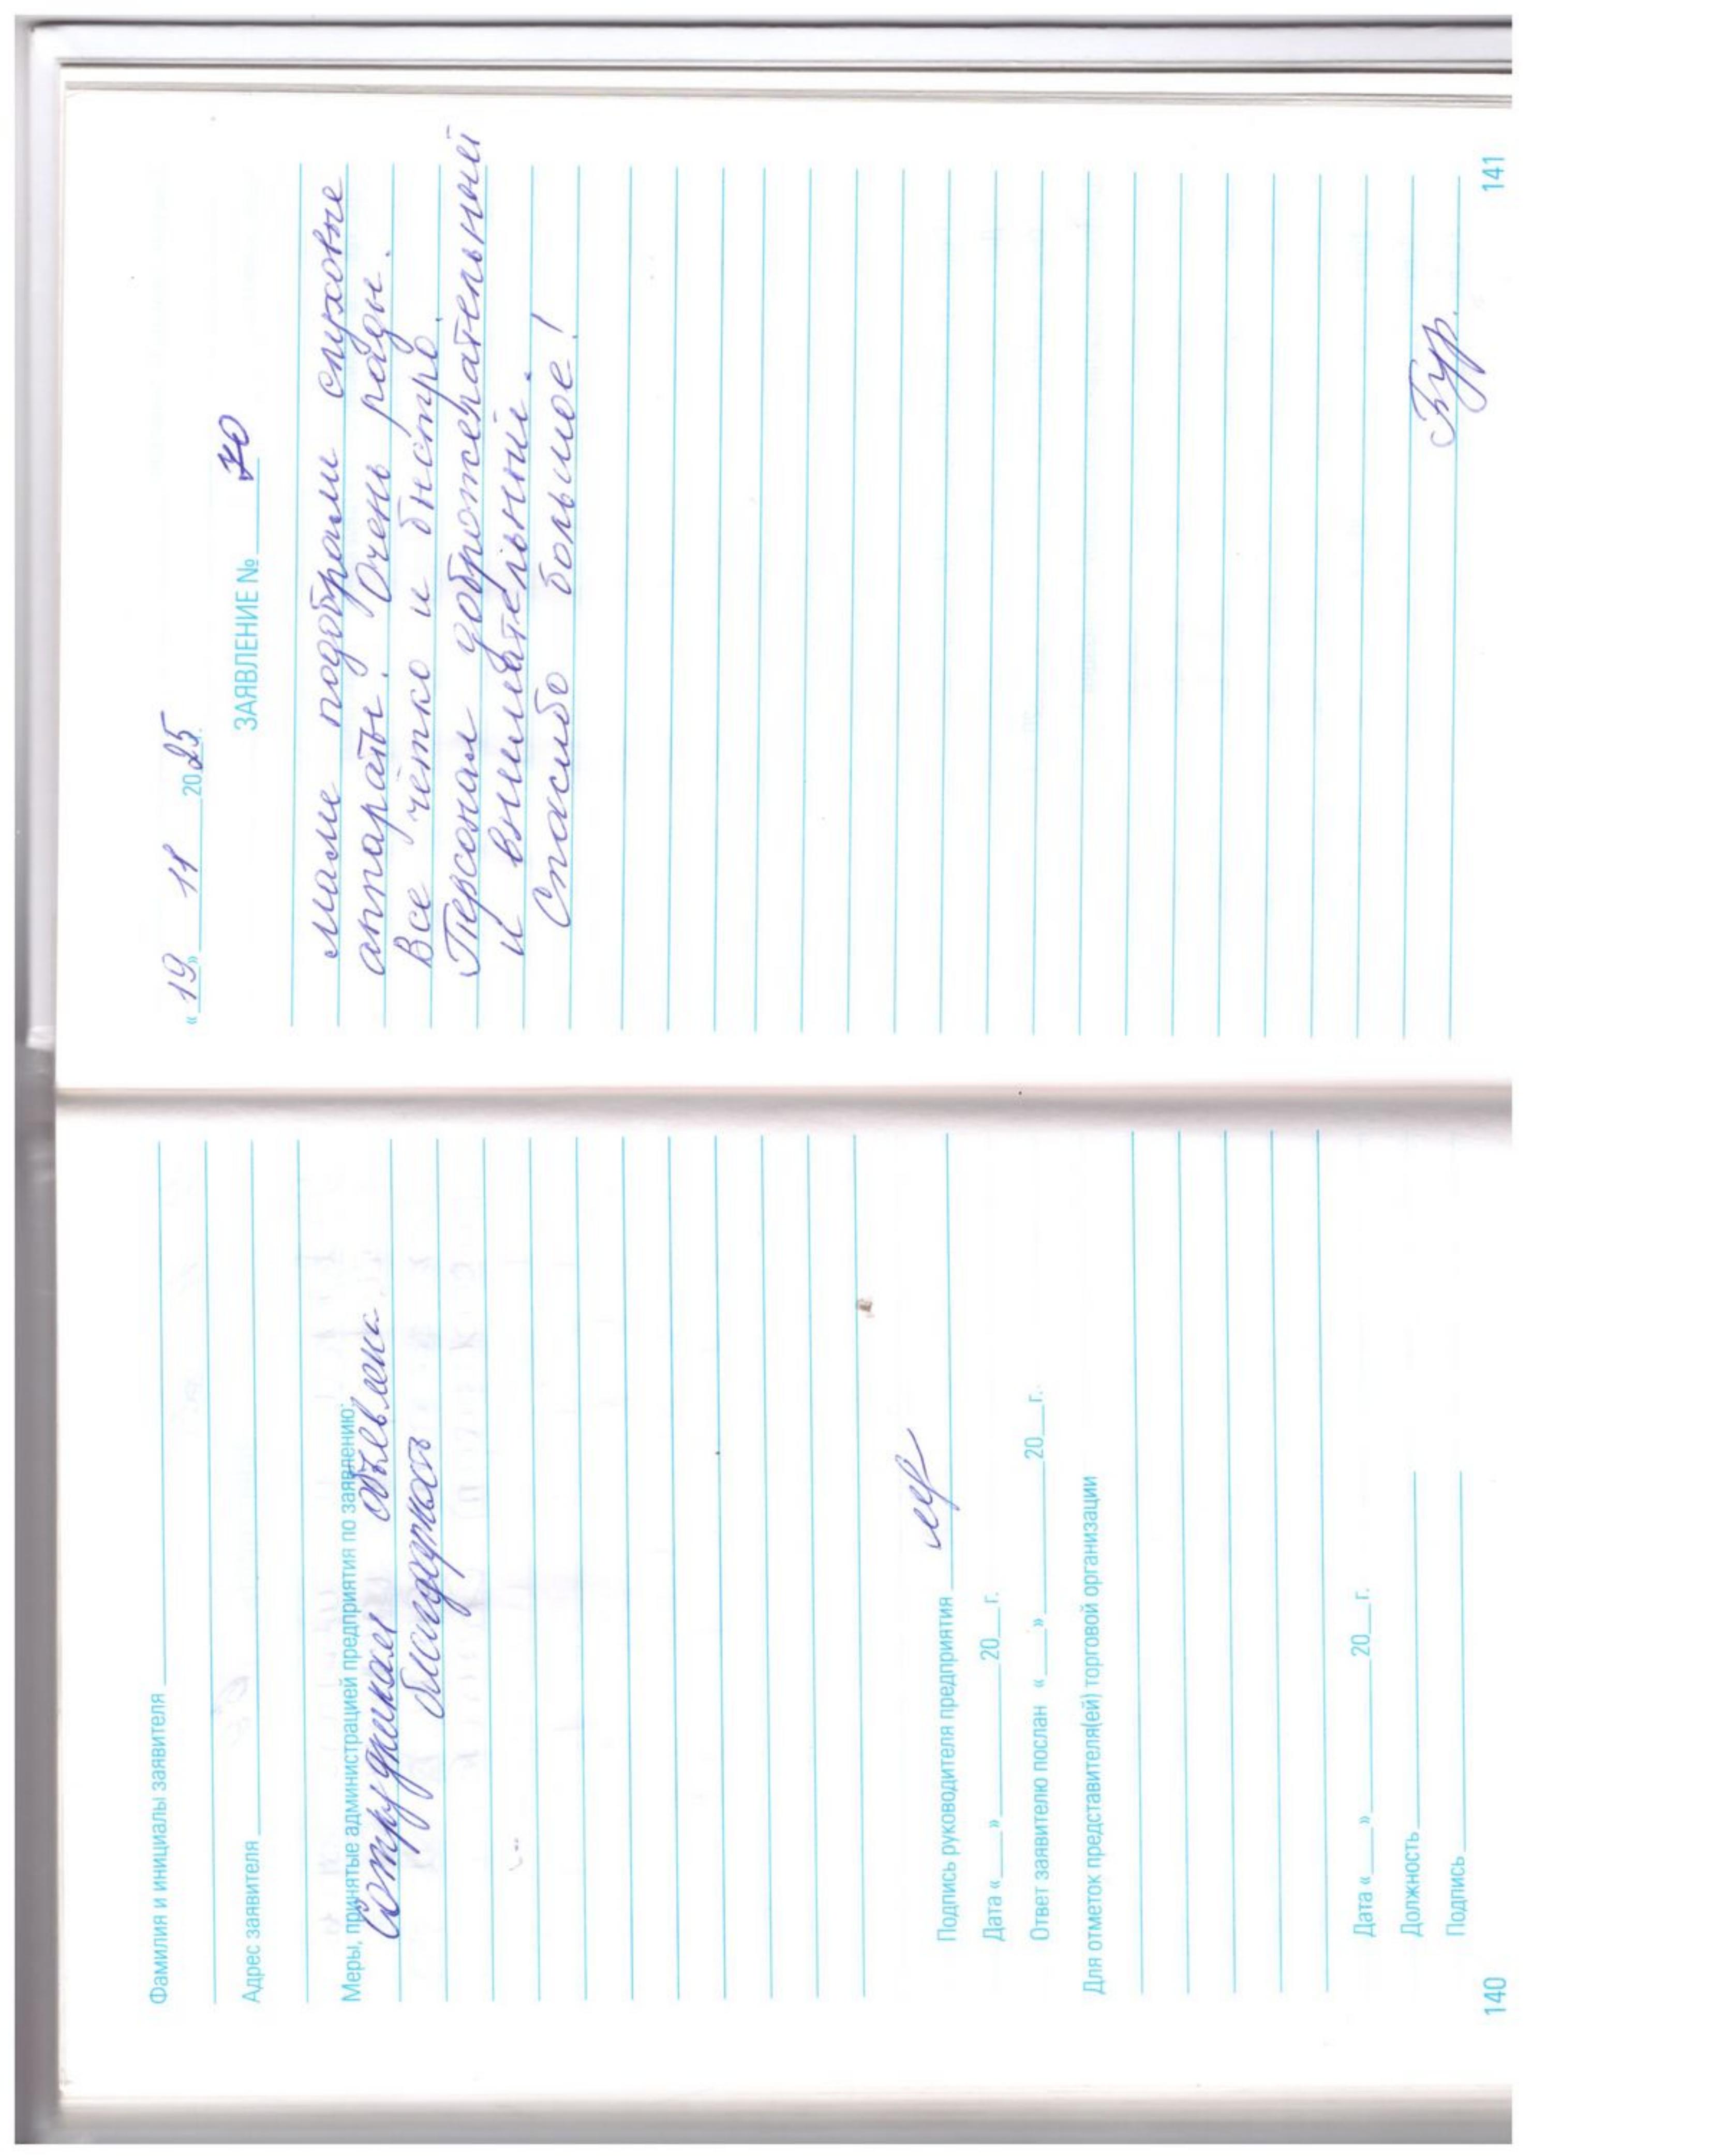 Фамилия и инициалы заявителя
Адрес заявителя
Меры, принятые администрацией предприятия по заявлению:
Сотрудникам объявлена
благодарность
Подпись руководителя предприятия
Дата «___» ______ 20__г.
Ответ заявителю послан «___» ______ 20__г.
Для отметок представителя(ей) торговой организации
Дата «___» ______ 20__г.
Должность
Подпись
140
«19» 11 2025г.
ЗАЯВЛЕНИЕ № 70
Маме подобрали слуховые
аппараты. Очень рады.
Все чётко и быстро.
Персонал доброжелательный
и внимательный.
Спасибо большое!
Бур.
141